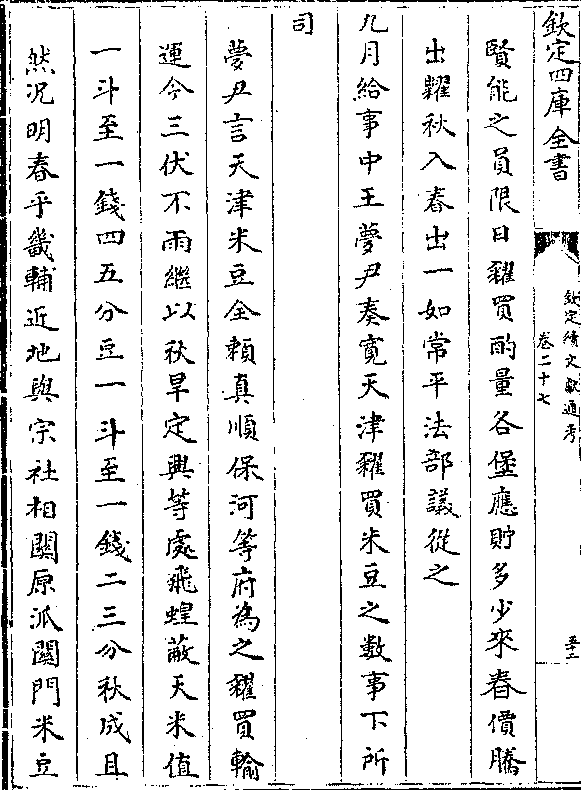 欽定四庫全書
欽定續文獻通考
卷二十七
至二
賢能之員限日糴買酌量各堡應貯多少來春價騰
出糶秋入春出一如常平法部議從之
九月給事中王夢尹奏寛天津糴買米豆之數事下所
司
夢尹言天津米豆全頼真順保河等府為之糴買輸
運今三伏不雨繼以秋旱定興等處飛蝗蔽天米值
一斗至一錢四五分豆一斗至一錢二三分秋成且
然况明春乎畿輔近地與宗社相關原派關門米豆